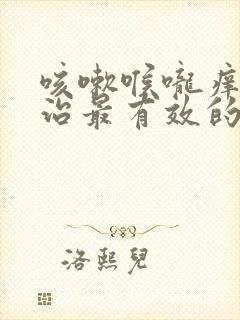 咳嗽喉嚨癢
治最有效的
洛熙兒